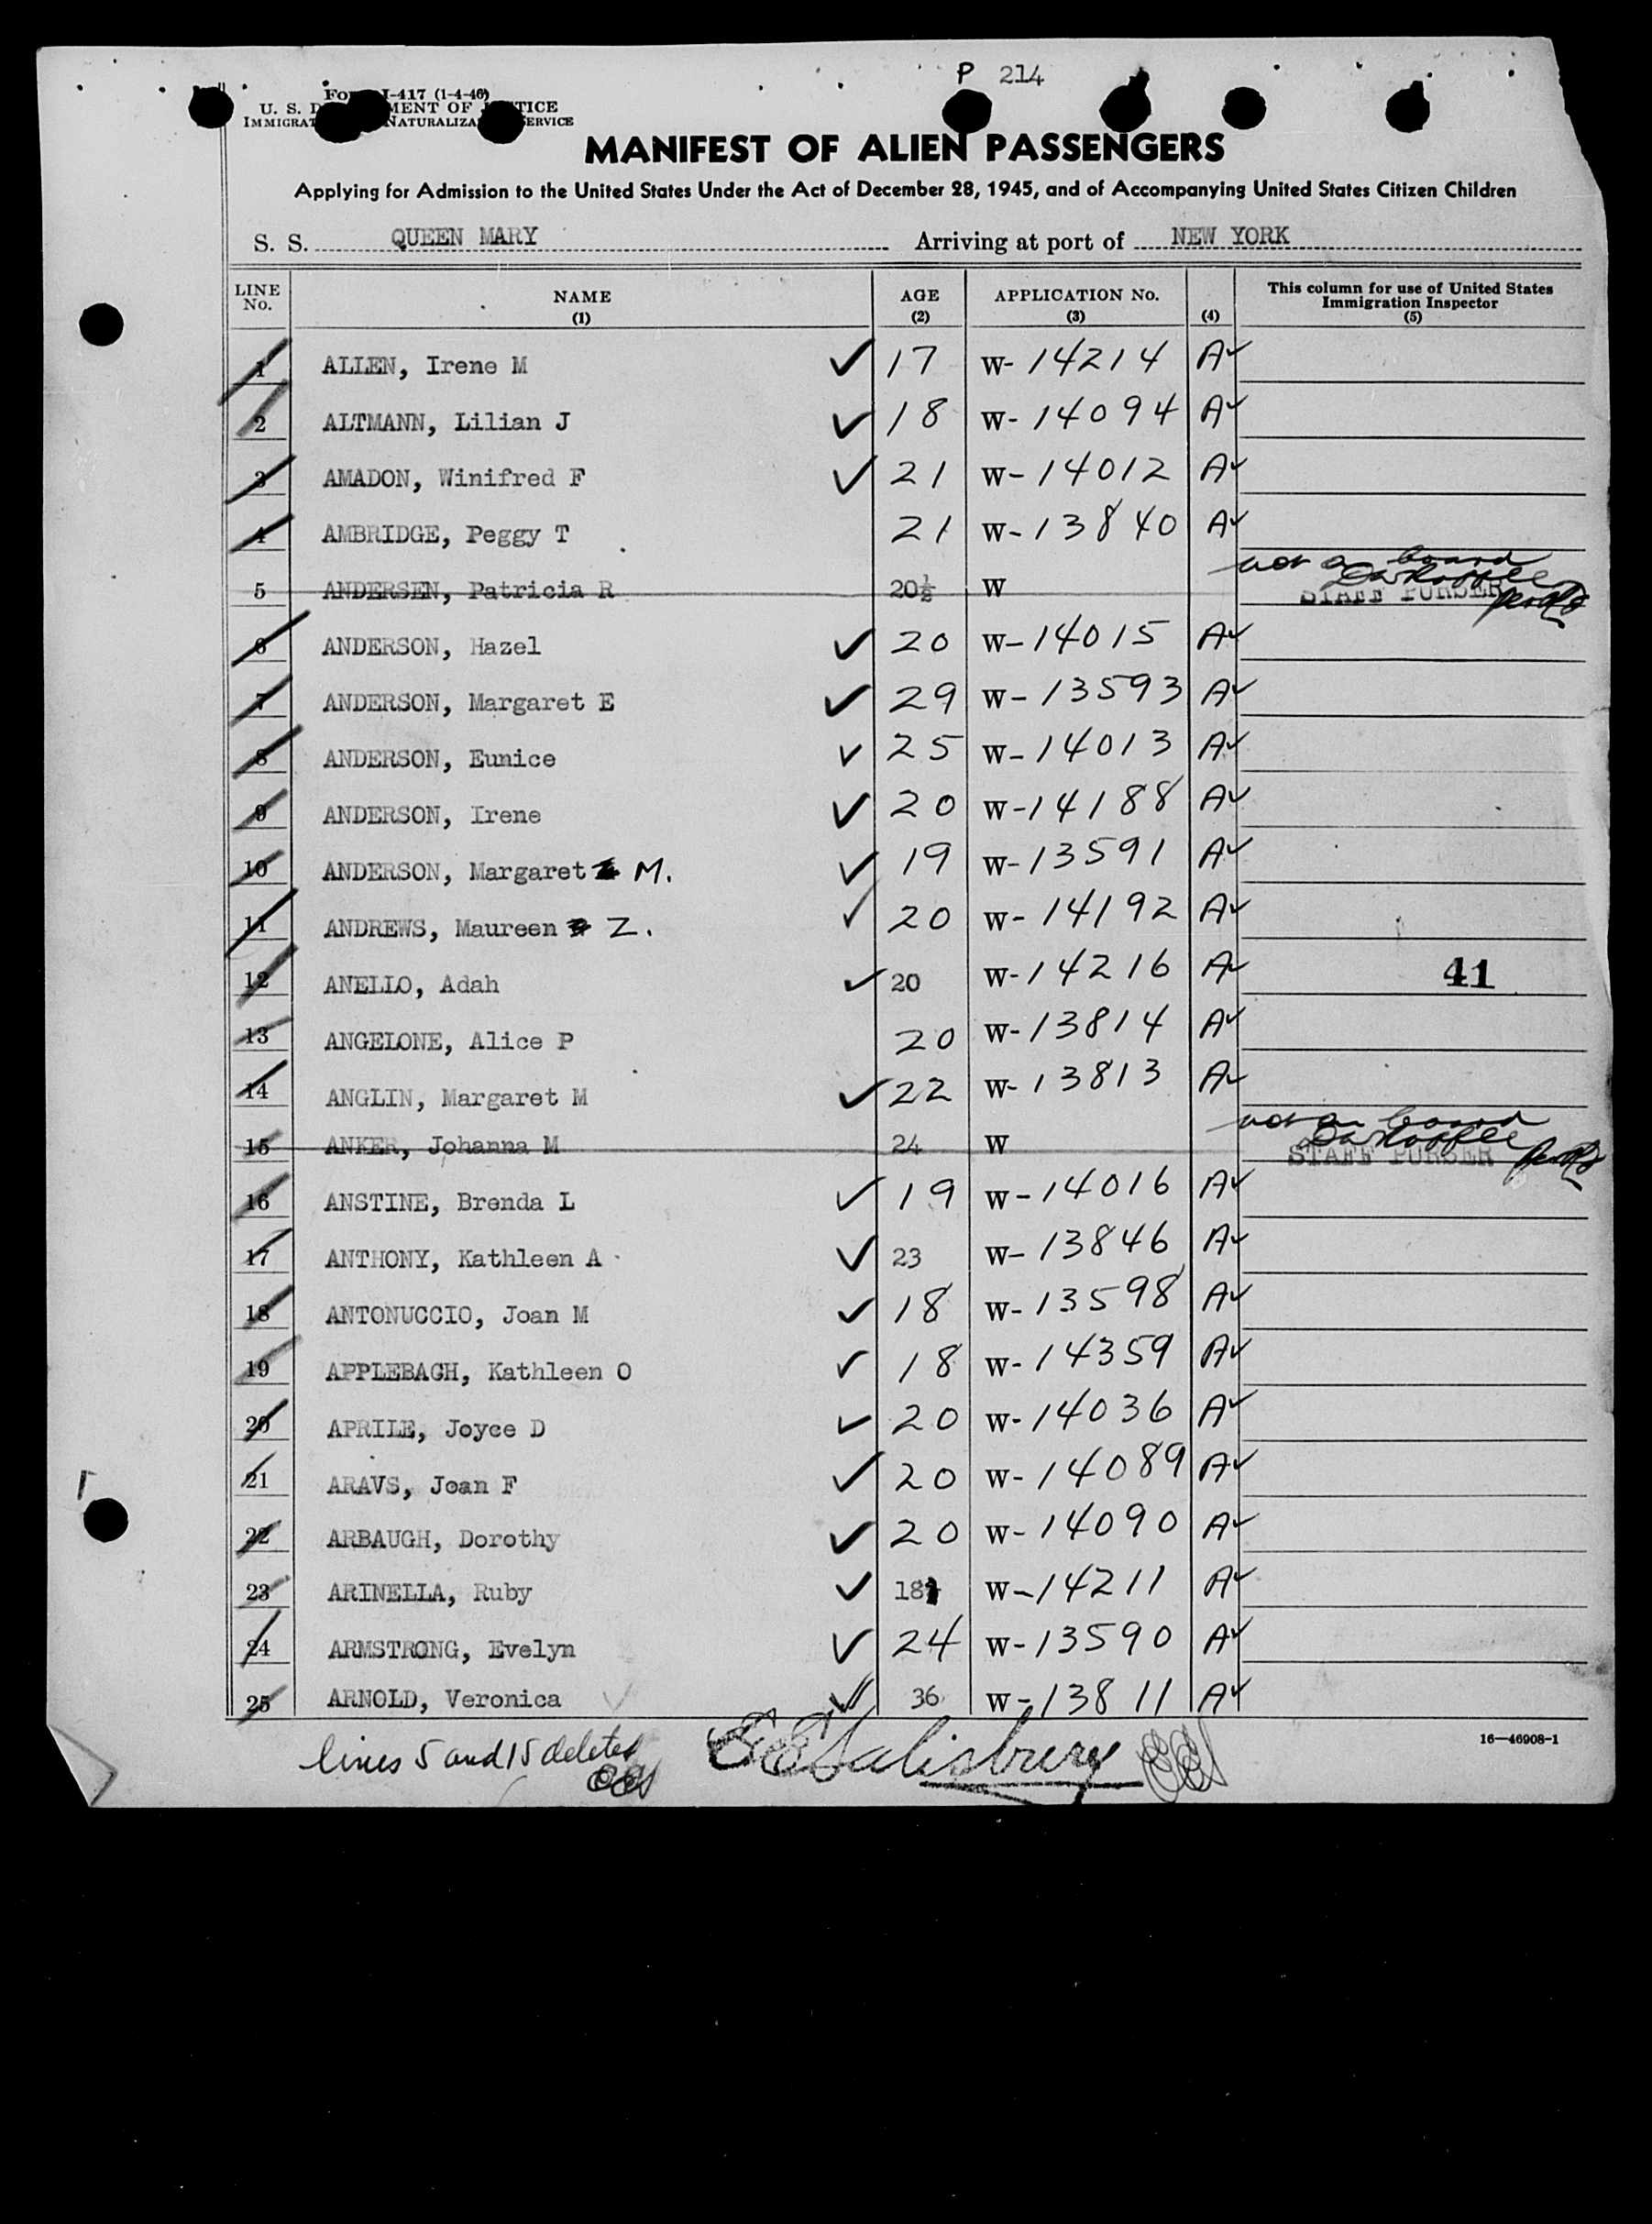 P 214
Form I-417 (1-4-46)
U. S. DEPARTMENT OF JUSTICE
IMMIGRATION NATURALIZATION SERVICE
MANIFEST OF ALIEN PASSENGERS
Applying for Admission to the United States Under the Act of December 28, 1945, and of Accompanying United States Citizen Children
S. S. QUEEN MARY Arriving at port of NEW YORK
LINE No. NAME (1) AGE (2) APPLICATION No. (3) (4) This column for use of United States Immigration Inspector (5)
1 ALLEN, Irene M 17 W-14214 A
2 ALTMANN, Lilian J 18 W-14094 A
3 AMADON, Winifred F 21 W-14012 A
4 AMBRIDGE, Peggy T 21 W-13840 A
5 ANDERSEN, Patricia R 20½ W not on board STAFF PURSER
6 ANDERSON, Hazel 20 W-14015 A
7 ANDERSON, Margaret E 29 W-13593 A
8 ANDERSON, Eunice 25 W-14013 A
9 ANDERSON, Irene 20 W-14188 A
10 ANDERSON, Margaret M. 19 W-13591 A
11 ANDREWS, Maureen Z. 20 W-14192 A
12 ANELLO, Adah 20 W-14216 A 41
13 ANGELONE, Alice P 20 W-13814 A
14 ANGLIN, Margaret M 22 W-13813 A
15 ANKER, Johanna M 24 W not on board STAFF PURSER
16 ANSTINE, Brenda L 19 W-14016 A
17 ANTHONY, Kathleen A 23 W-13846 A
18 ANTONUCCIO, Joan M 18 W-13598 A
19 APPLEBACH, Kathleen O 18 W-14359 A
20 APRILE, Joyce D 20 W-14036 A
21 ARAVS, Joan F 20 W-14089 A
22 ARBAUGH, Dorothy 20 W-14090 A
23 ARINELLA, Ruby 18 W-14211 A
24 ARMSTRONG, Evelyn 24 W-13590 A
25 ARNOLD, Veronica 36 W-13811 A
16—46908-1
lines 5 and 15 deleted EES
EESalisbury EES